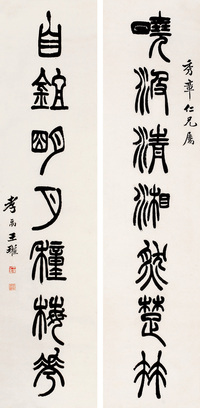 秀章仁兄屬
曉汲清湘然楚竹
自鉏明月種梅花
孝禹王瓘